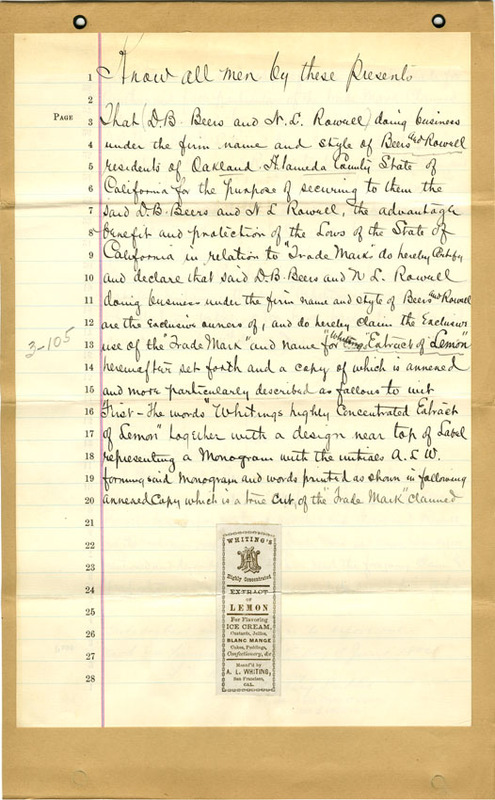 1 Know all men by these Presents
2
PAGE
3 That (D.B. Beers and N.L. Rowell) doing business
4 under the firm name and style of Beers and Rowell
5 residents of Oakland Alameda County State of
6 California for the purpose of securing to them the
7 said D.B. Beers and N L Rowell, the advantage
8 benefit and protection of the Laws of the State of
9 California in relation to "Trade Mark" do hereby Certify
10 and declare that said D.B. Beers and N L. Rowell
11 doing business under the firm name and style of Beers and Rowell
12 are the Exclusive owners of, and do hereby claim the Exclusive
3-105
13 use of the Trade Mark" and name "for Whitings Extract of Lemon"
14 hereafter set forth and a copy of which is annexed
15 and more particularly described as follows to wit
16 "First - The words "Whitings highly Concentrated Extract
17 of Lemon" together with a design near top of Label
18 representing a Monogram with the initials A. L W.
19 forming said Monogram and words printed as shown in following
20 annexed Copy which is a true Cut, of the "Trade Mark" claimed
21
22
23
24
25
26
27
28
WHITING'S
Highly Concentrated
EXTRACT
OF
LEMON
For Flavoring
ICE CREAM,
Custards, Jellies,
BLANC MANGE
Cakes, Puddings,
Confectionary, &c
Manuf'd by
A. L. WHITING,
San Francisco,
CAL.